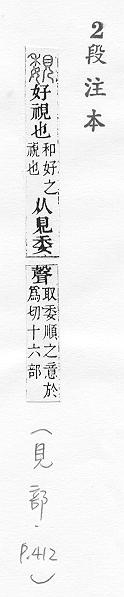 2段注本
覣好視也和好之視也从見委聲取委順之意於為切十六部
(見部.P.412)